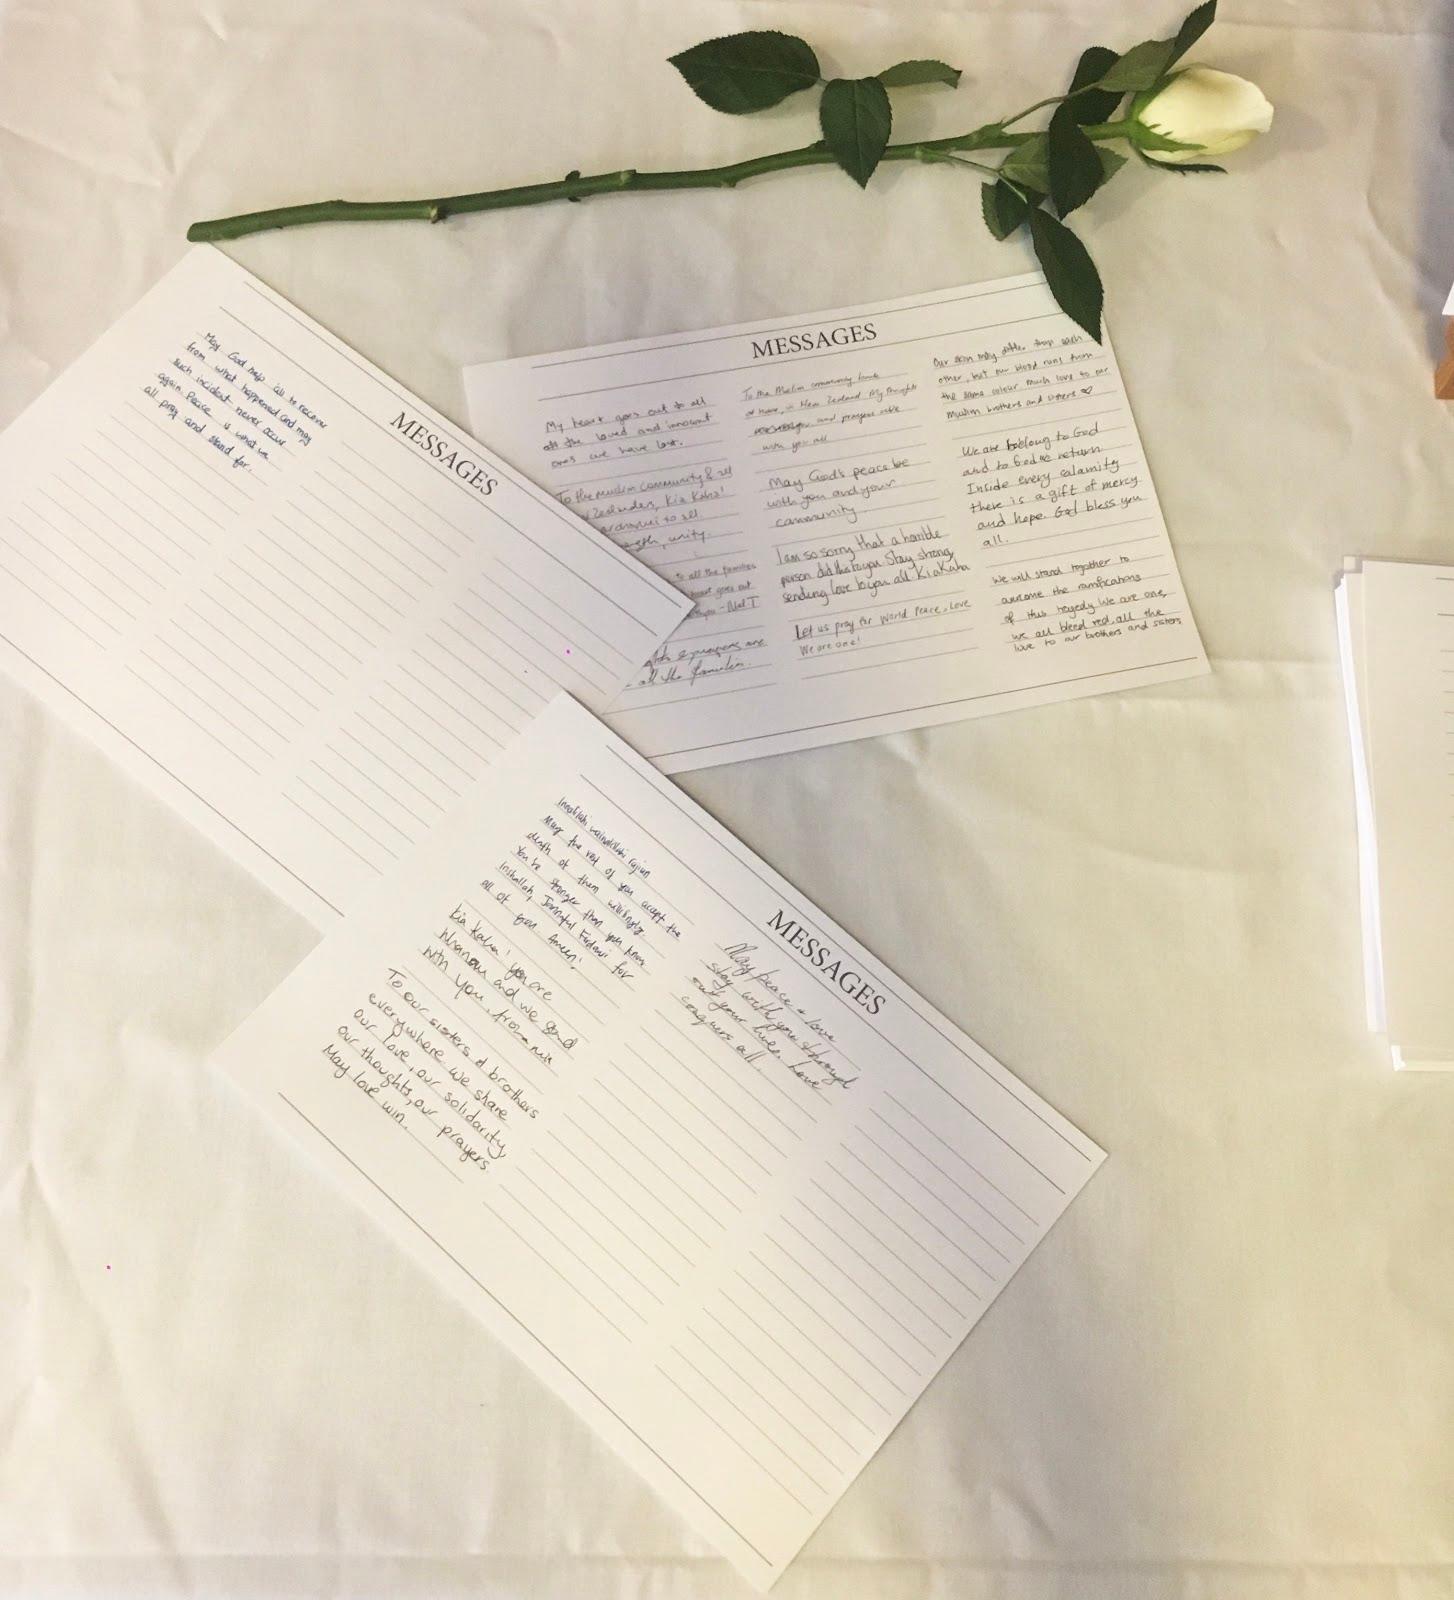 MESSAGES
May God help all to recover
from what happened and may
such incident never occur
again. Peace is what we
all pray and stand for.
MESSAGES
My heart goes out to all
off the loved and innocent
ones we have lost.
To the muslim community & all
Zealanders, Kia Kaha!
to all
unity.
to all the families
heart goes out
you - Nat T
& prayers are
all the families.
To the Muslim community here
at home, in New Zealand My thoughts
and prayers
with you all
May God's peace be
with you and your
community.
I am so sorry that a horrible
person did this to you. Stay strong,
sending love to you all. Kia Kaha
Let us pray for World Peace, Love
We are one!
Our skin may differ from each
other, but our blood runs
the same colour much love to our
Muslim brothers and sisters ♡
We are belong to God
and to God return
Inside every calamity
there is a gift of mercy
and hope. God bless you
all.
We will stand together to
overcome the ramifications
of this tragedy. We are one,
we all bleed red, all the
love to our brothers and sisters
MESSAGES
rajiun
May the rest of you accept the
death of them willingly
You're stronger than you know
Inshallah, Jannatul for
all of you Ameen!
Kia Kaha! you are
whanau and we stand
with you.
To our sisters & brothers
everywhere. we share
our love, our solidarity,
our thoughts, our prayers.
May love win.
May peace & love
stay with you through
out your lives. Love
conquers all.